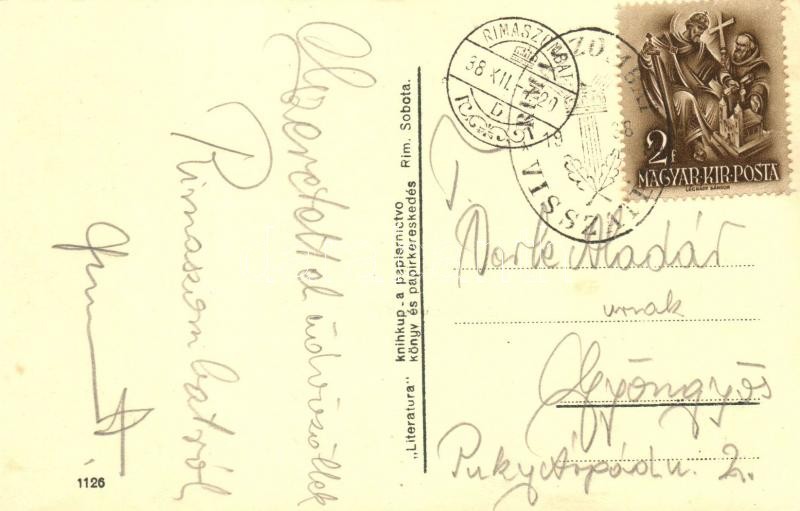 Szeretettel üdvözöllek
Rimaszombatról
1126
„Literatura" knihkup. a papiernictvo
könyv és papirkereskedés Rim. Sobota.
RIMASZOMBAT
38 XII. 20
D
VISSZATÉRT
1938
2f
MAGYAR·KIR·POSTA
LÉGRÁDY SÁNDOR
T.
Aladár
urnak
Gyöngyös
Puky Árpád u. 2.